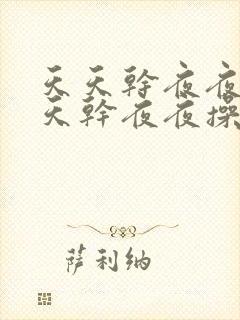 天天幹夜夜
天幹夜夜操
萨利纳